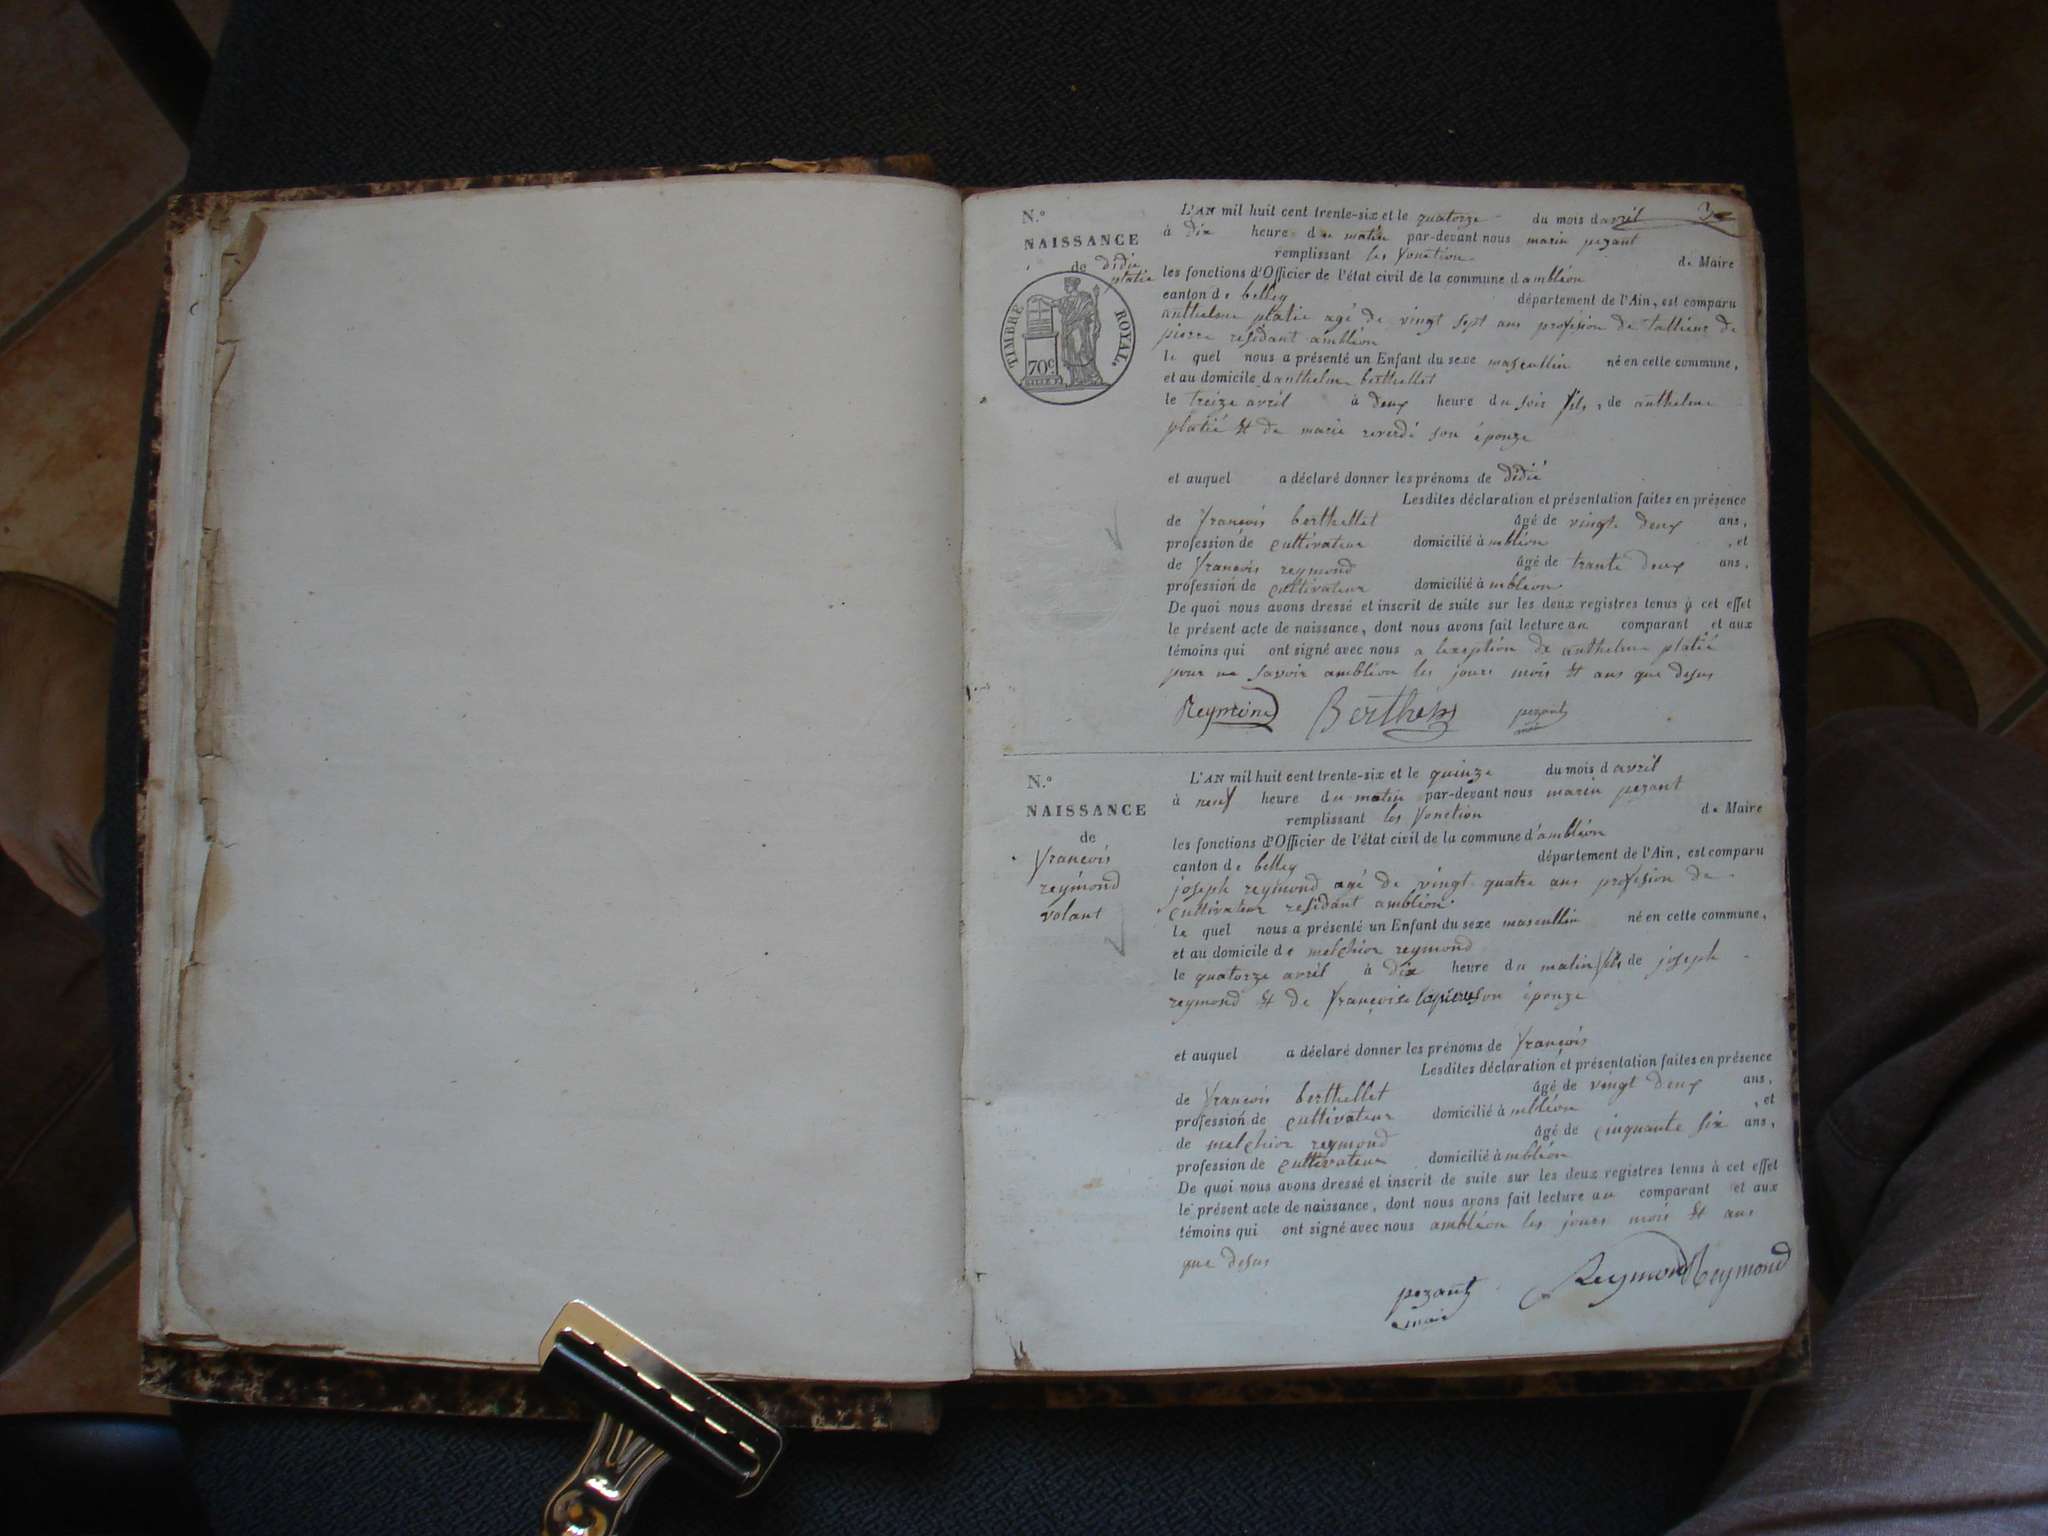 3
N.º
NAISSANCE
de didié
platié
TIMBRE ROYAL
70c
L'AN mil huit cent trente-six et le quatorze du mois d avril
à dix heure du matin par-devant nous marin pezant
remplissant les fonction de Maire
les fonctions d'Officier de l'état civil de la commune d ambléon
canton de belley département de l'Ain, est comparu
anthelme platié agé de vingt sept ans profésion de tallieur de
pierre résidant ambléon
le quel nous a présenté un Enfant du sexe mascullin né en cette commune,
et au domicile d anthelme berthellet
le treize avril à deux heure du soir fils de anthelme
platié et de marie reverdé son éponze
et auquel a déclaré donner les prénoms de didié
Lesdites déclaration et présentation faites en présence
de françois berthellet âgé de vingte deux ans,
profession de cultivateur domicilié à mbléon , et
de françois reymond âgé de trante deux ans,
profession de cultivateur domicilié à mbléon
De quoi nous avons dressé et inscrit de suite sur les deux registres tenus à cet effet
le présent acte de naissance, dont nous avons fait lecture au comparant et aux
témoins qui ont signé avec nous a lexeption de anthelme platié
pour ne savoir ambléon les jours mois et ans que desus
Reymond Berthet pezant
maire
N.º
NAISSANCE
de
françois
reymond
volant
L'AN mil huit cent trente-six et le quinze du mois d avril
à neuf heure du matin par-devant nous marin pezant
remplissant les fonction de Maire
les fonctions d'Officier de l'état civil de la commune d'ambléon
canton de belley département de l'Ain, est comparu
joseph reymond agé de vingt quatre ans profésion de
cultivateur résidant ambléon
le quel nous a présenté un Enfant du sexe mascullin né en cette commune,
et au domicile de melchior reymond
le quatorze avril à dix heure du matin fils de joseph
reymond et de françoise son éponze
et auquel a déclaré donner les prénoms de françois
Lesdites déclaration et présentation faites en présence
de françois berthellet âgé de vingt deux ans,
profession de cultivateur domicilié à mbléon , et
de melchior reymond âgé de cinquante six ans,
profession de cultivateur domicilié à mbléon
De quoi nous avons dressé et inscrit de suite sur les deux registres tenus à cet effet
le présent acte de naissance, dont nous avons fait lecture au comparant et aux
témoins qui ont signé avec nous ambléon les jours mois et ans
que desus
pezant Reymond Reymond
maire